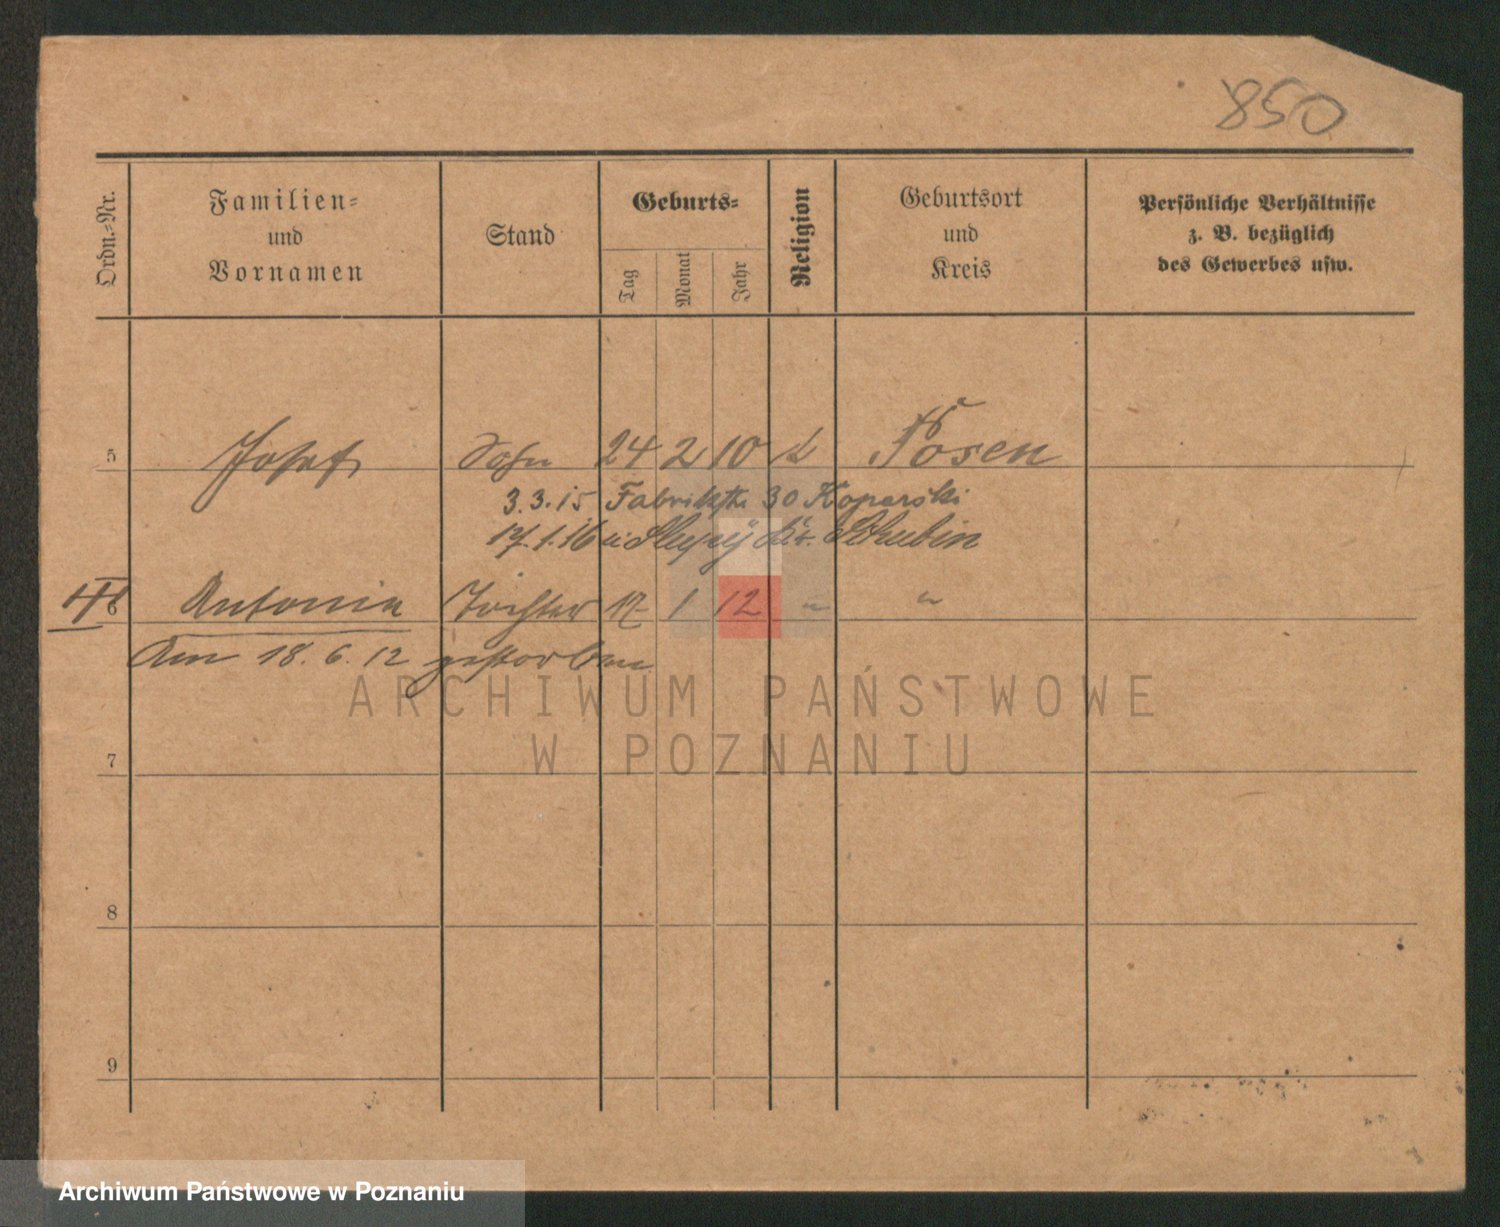 850
Ordn.-Nr.
Familien-
und
Vornamen
Stand
Geburts-
Tag
Monat
Jahr
Religion
Geburtsort
und
Kreis
Persönliche Verhältnisse
z. B. bezüglich
des Gewerbes usw.
5 Josef Sohn 24 2 10 k Posen
3.3.15. Fabrikstr. 30 Koparski
17.1.16 Kr. Schubin
6 Antonie Tochter 17 1 12 " "
Am 18.6.12 gestorben
ARCHIWUM PAŃSTWOWE
W POZNANIU
7
8
9
Archiwum Państwowe w Poznaniu